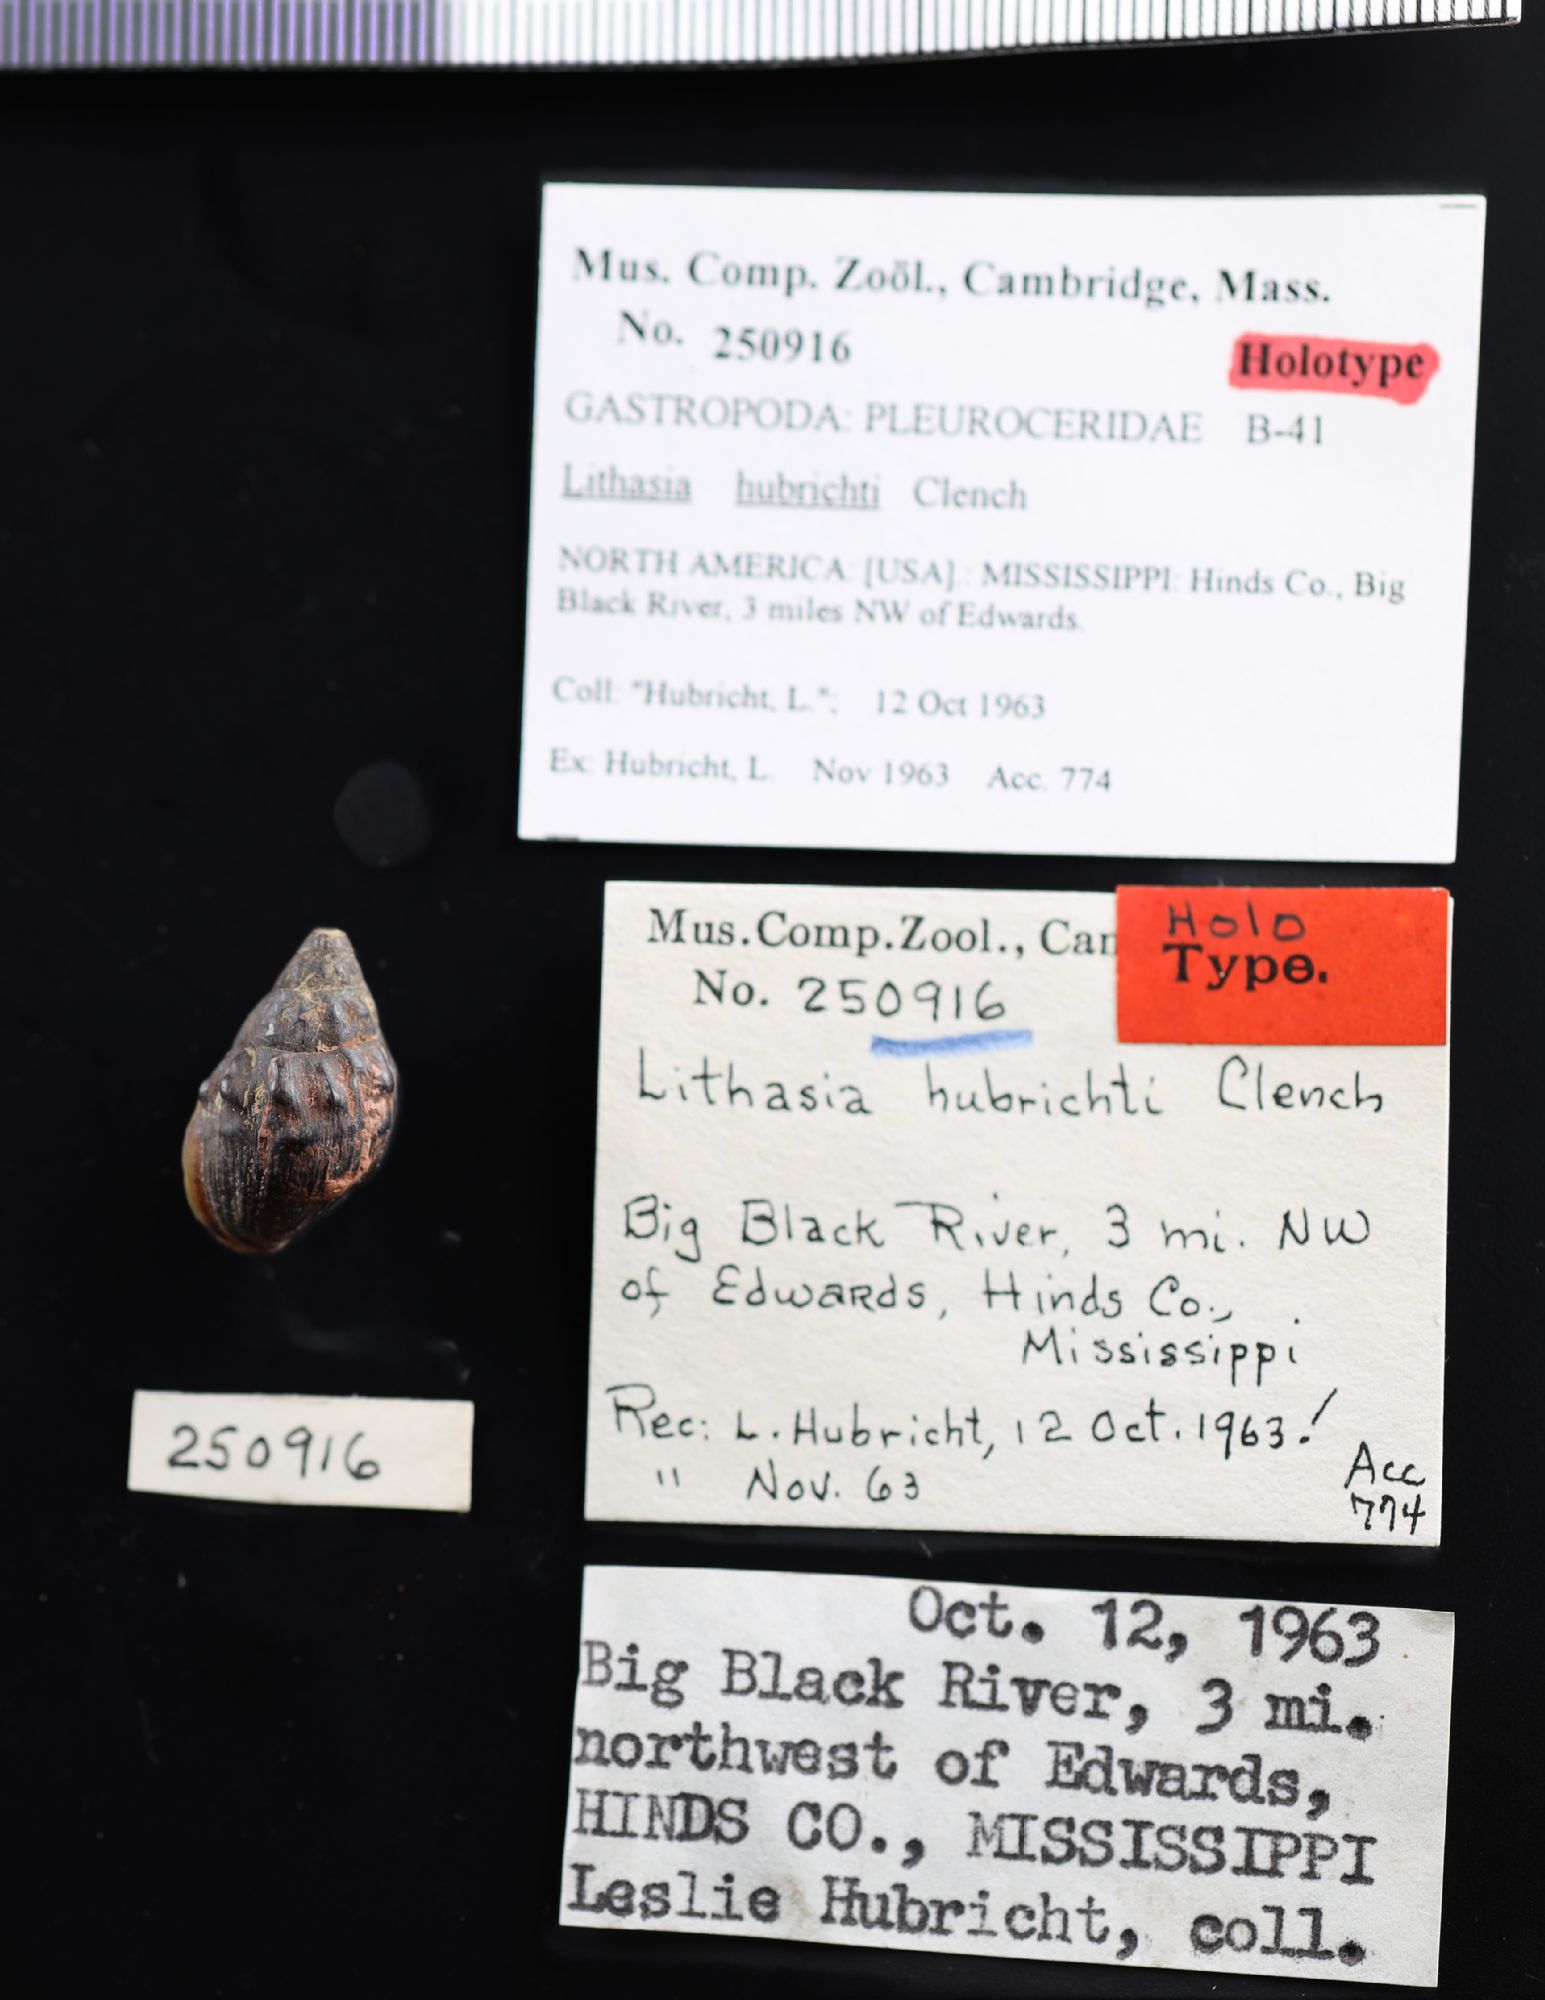 Mus. Comp. Zoöl., Cambridge, Mass.
No. 250916
Holotype
GASTROPODA: PLEUROCERIDAE B-41
Lithasia hubrichti Clench
NORTH AMERICA: [USA]: MISSISSIPPI: Hinds Co., Big
Black River, 3 miles NW of Edwards.
Coll: "Hubricht, L."; 12 Oct 1963
Ex: Hubricht, L. Nov 1963 Acc. 774
Mus.Comp.Zool., Cam
Holo
Type.
No. 250916
Lithasia hubrichti Clench
Big Black River, 3 mi. NW
of Edwards, Hinds Co.,
Mississippi
Rec: L. Hubricht, 12 Oct. 1963!
" Nov. 63
Acc
774
250916
Oct. 12, 1963
Big Black River, 3 mi.
northwest of Edwards,
HINDS CO., MISSISSIPPI
Leslie Hubricht, coll.